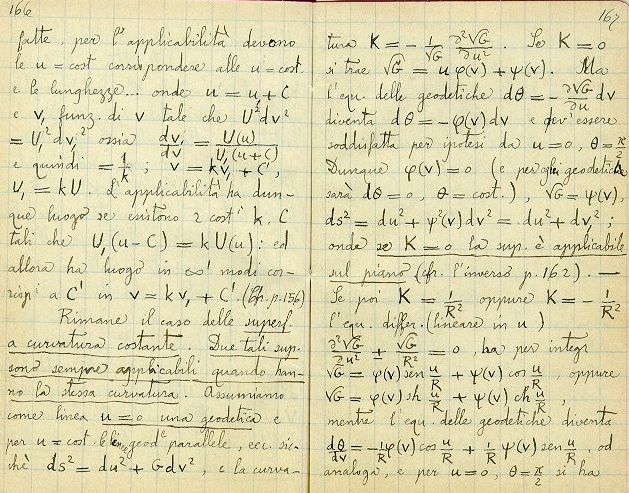 166
fatte, per l'applicabilità devono
le u = cost corrispondere alle u = cost.
e le lunghezze... onde u = u + C
e v, funz. di v tale che U²dv²
= U₁²dv₁² ossia dv₁/dv = U(u)/U₁(u+C)
e quindi = 1/k ; v = kv₁ + C',
U₁ = kU. L'applicabilità ha dun-
que luogo se esistono 2 cost! k, C
tali che U₁(u-C) = kU(u): ed
allora ha luogo in ∞' modi cor-
risp! a C' in v = kv₁ + C'. (Cfr. p. 156)
Rimane il caso delle superf.
a curvatura costante. Due tali sup.
sono sempre applicabili quando han-
no la stessa curvatura. Assumiamo
come linea u=0 una geodetica e
per u = cost. le linee geod.e parallele, ecc. sic-
chè ds² = du² + Gdv², e la curva-
167
tura K = - 1/√G ∂²√G/∂u². Se K = 0
si trae √G = u φ(v) + ψ(v). Ma
l'equ. delle geodetiche dθ = - ∂√G/∂u dv
diventa dθ = -φ(v)dv e dev'essere
soddisfatta per ipotesi da u=0, θ=π/2
Dunque φ(v) = 0 (e per gli geodetiche
sarà dθ = 0, θ = cost.), √G = ψ(v),
ds² = du² + ψ²(v)dv² = du² + dv₁²;
onde se K = 0 la sup. è applicabile
sul piano (cfr. l'inverso p. 162). —
Se poi K = 1/R² oppure K = - 1/R²
l'equ. differ. (lineare in u)
∂²√G/∂u² ± √G/R² = 0, ha per integr.
√G = φ(v) sen u/R + ψ(v) cos u/R, oppure
√G = φ(v) sh u/R + ψ(v) ch u/R,
mentre l'equ. delle geodetiche diventa
dθ/dv = - 1/R φ(v) cos u/R + 1/R ψ(v) sen u/R, od
analoga, e per u=0, θ=π/2 si ha